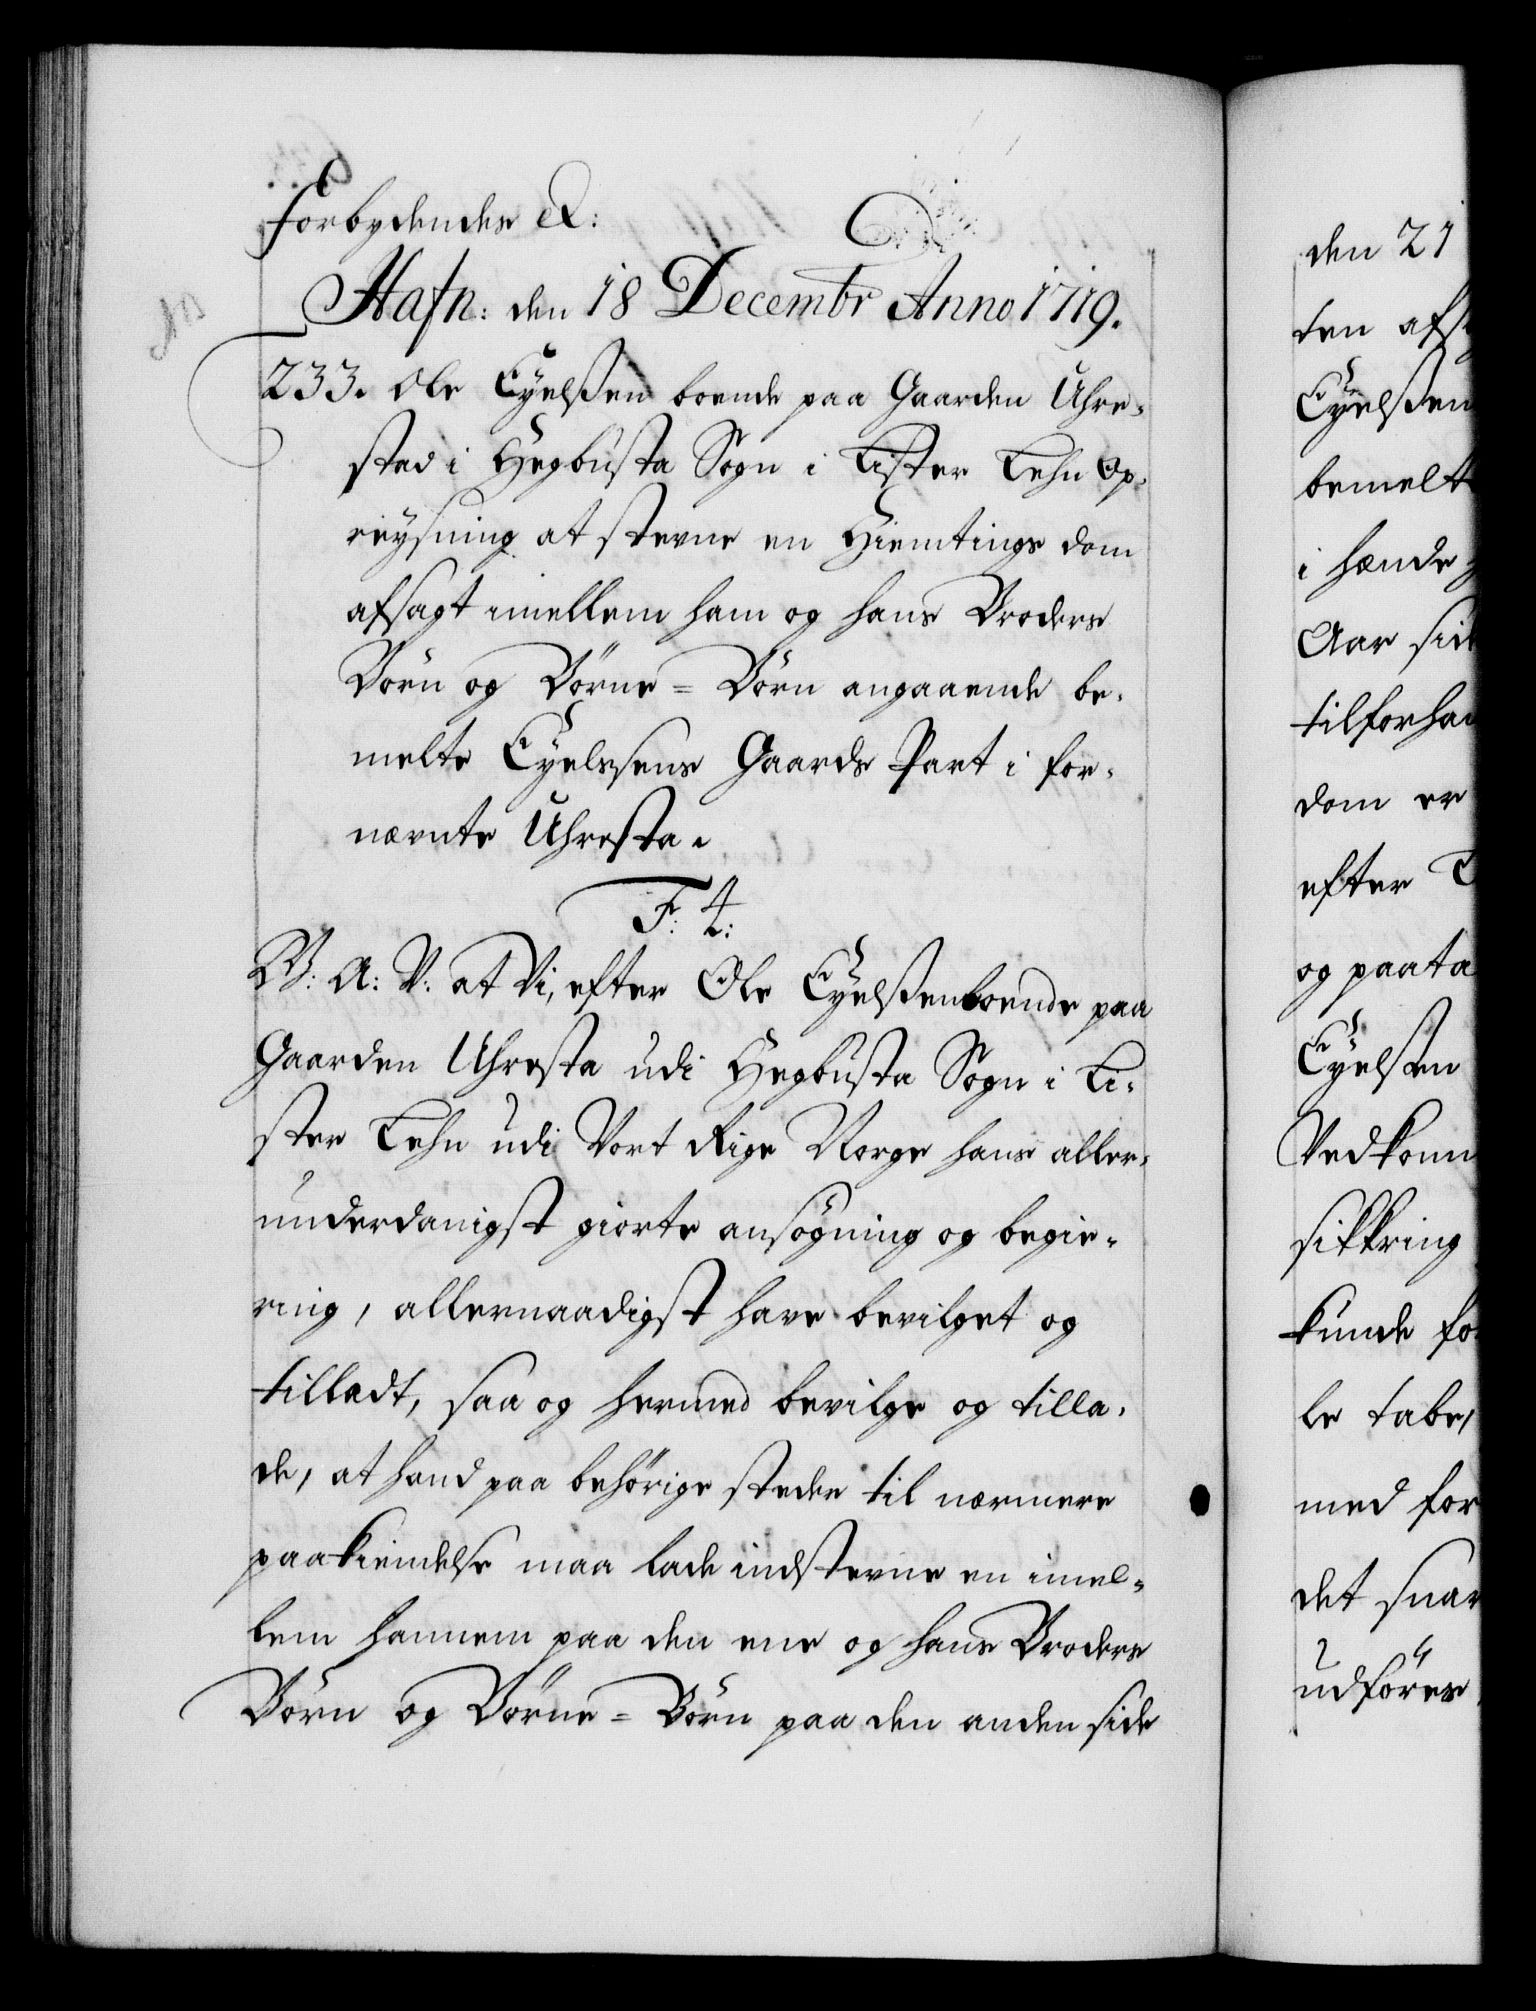 Forbydendes &:
Hafn: den 18 Decembr Anno 1719.
233. Ole Eyelßen boende paa Gaarden Uhre-
stad i Hegbusta Sogn i Lister Lehn Op-
reysning at stevne en Hiemtings dom
afsagt imellem ham og hans Broders
Börn og Börne = Börn angaaende be-
melte Eyelssens Gaards Part i for-
nævnte Uhresta.
F. 4:
W: A: V: at Vi, efter Ole Eyelßen boende paa
Gaarden Uhresta udi Hegbusta Sogn i Li-
ster Lehn udi Vort Rige Norge hans aller-
underdanigst giorte ansögning og begie-
ring, allernaadigst have bevilget og
tilladt, saa og hermed bevilge og tilla-
de, at hand paa behörige steder til nærmere
paakiendelse maa lade indstevne en imel-
lem hannem paa den ene og hans Broders
Börn og Börne = Börn paa den anden side
den 21
ten afs
Eyelßen
bemelt
i hænde
Aar sid
tilforha
dom er
efter
og paata
Eyelßen
Vedkom
sikkring
kunde fo
le tabe,
med for
det snar
udföres